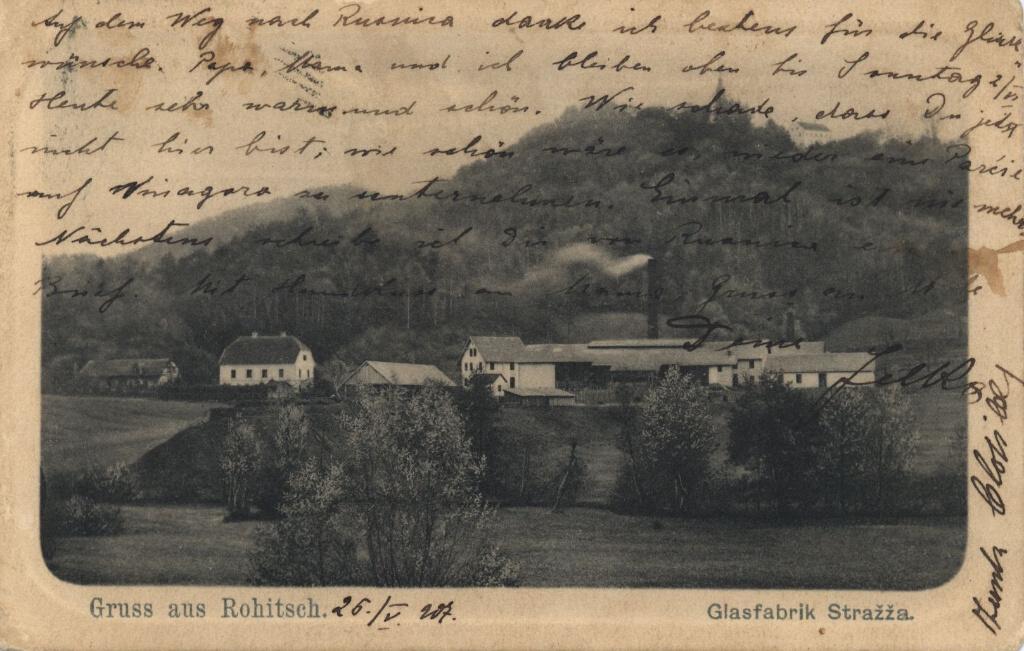 Auf dem Weg nach Rusnica danke ich bestens für die Glück
wünsche. Papa, Mama und ich bleiben oben bis Sonntag 2/VI
Heute sehr warm und schön. Wie schade, dass Du jetzt
nicht hier bist; wie schön wäre es, wieder eine Parcie
auf Winagora zu unternehmen. Einmal ist nie mehr
Nächstens schreibe ich Dir von Rusnica
Brief. Mit Handkuss an Mama, Gruss an
Deine
Gruss aus Rohitsch. 26./V. 907.
Glasfabrik Stražža.